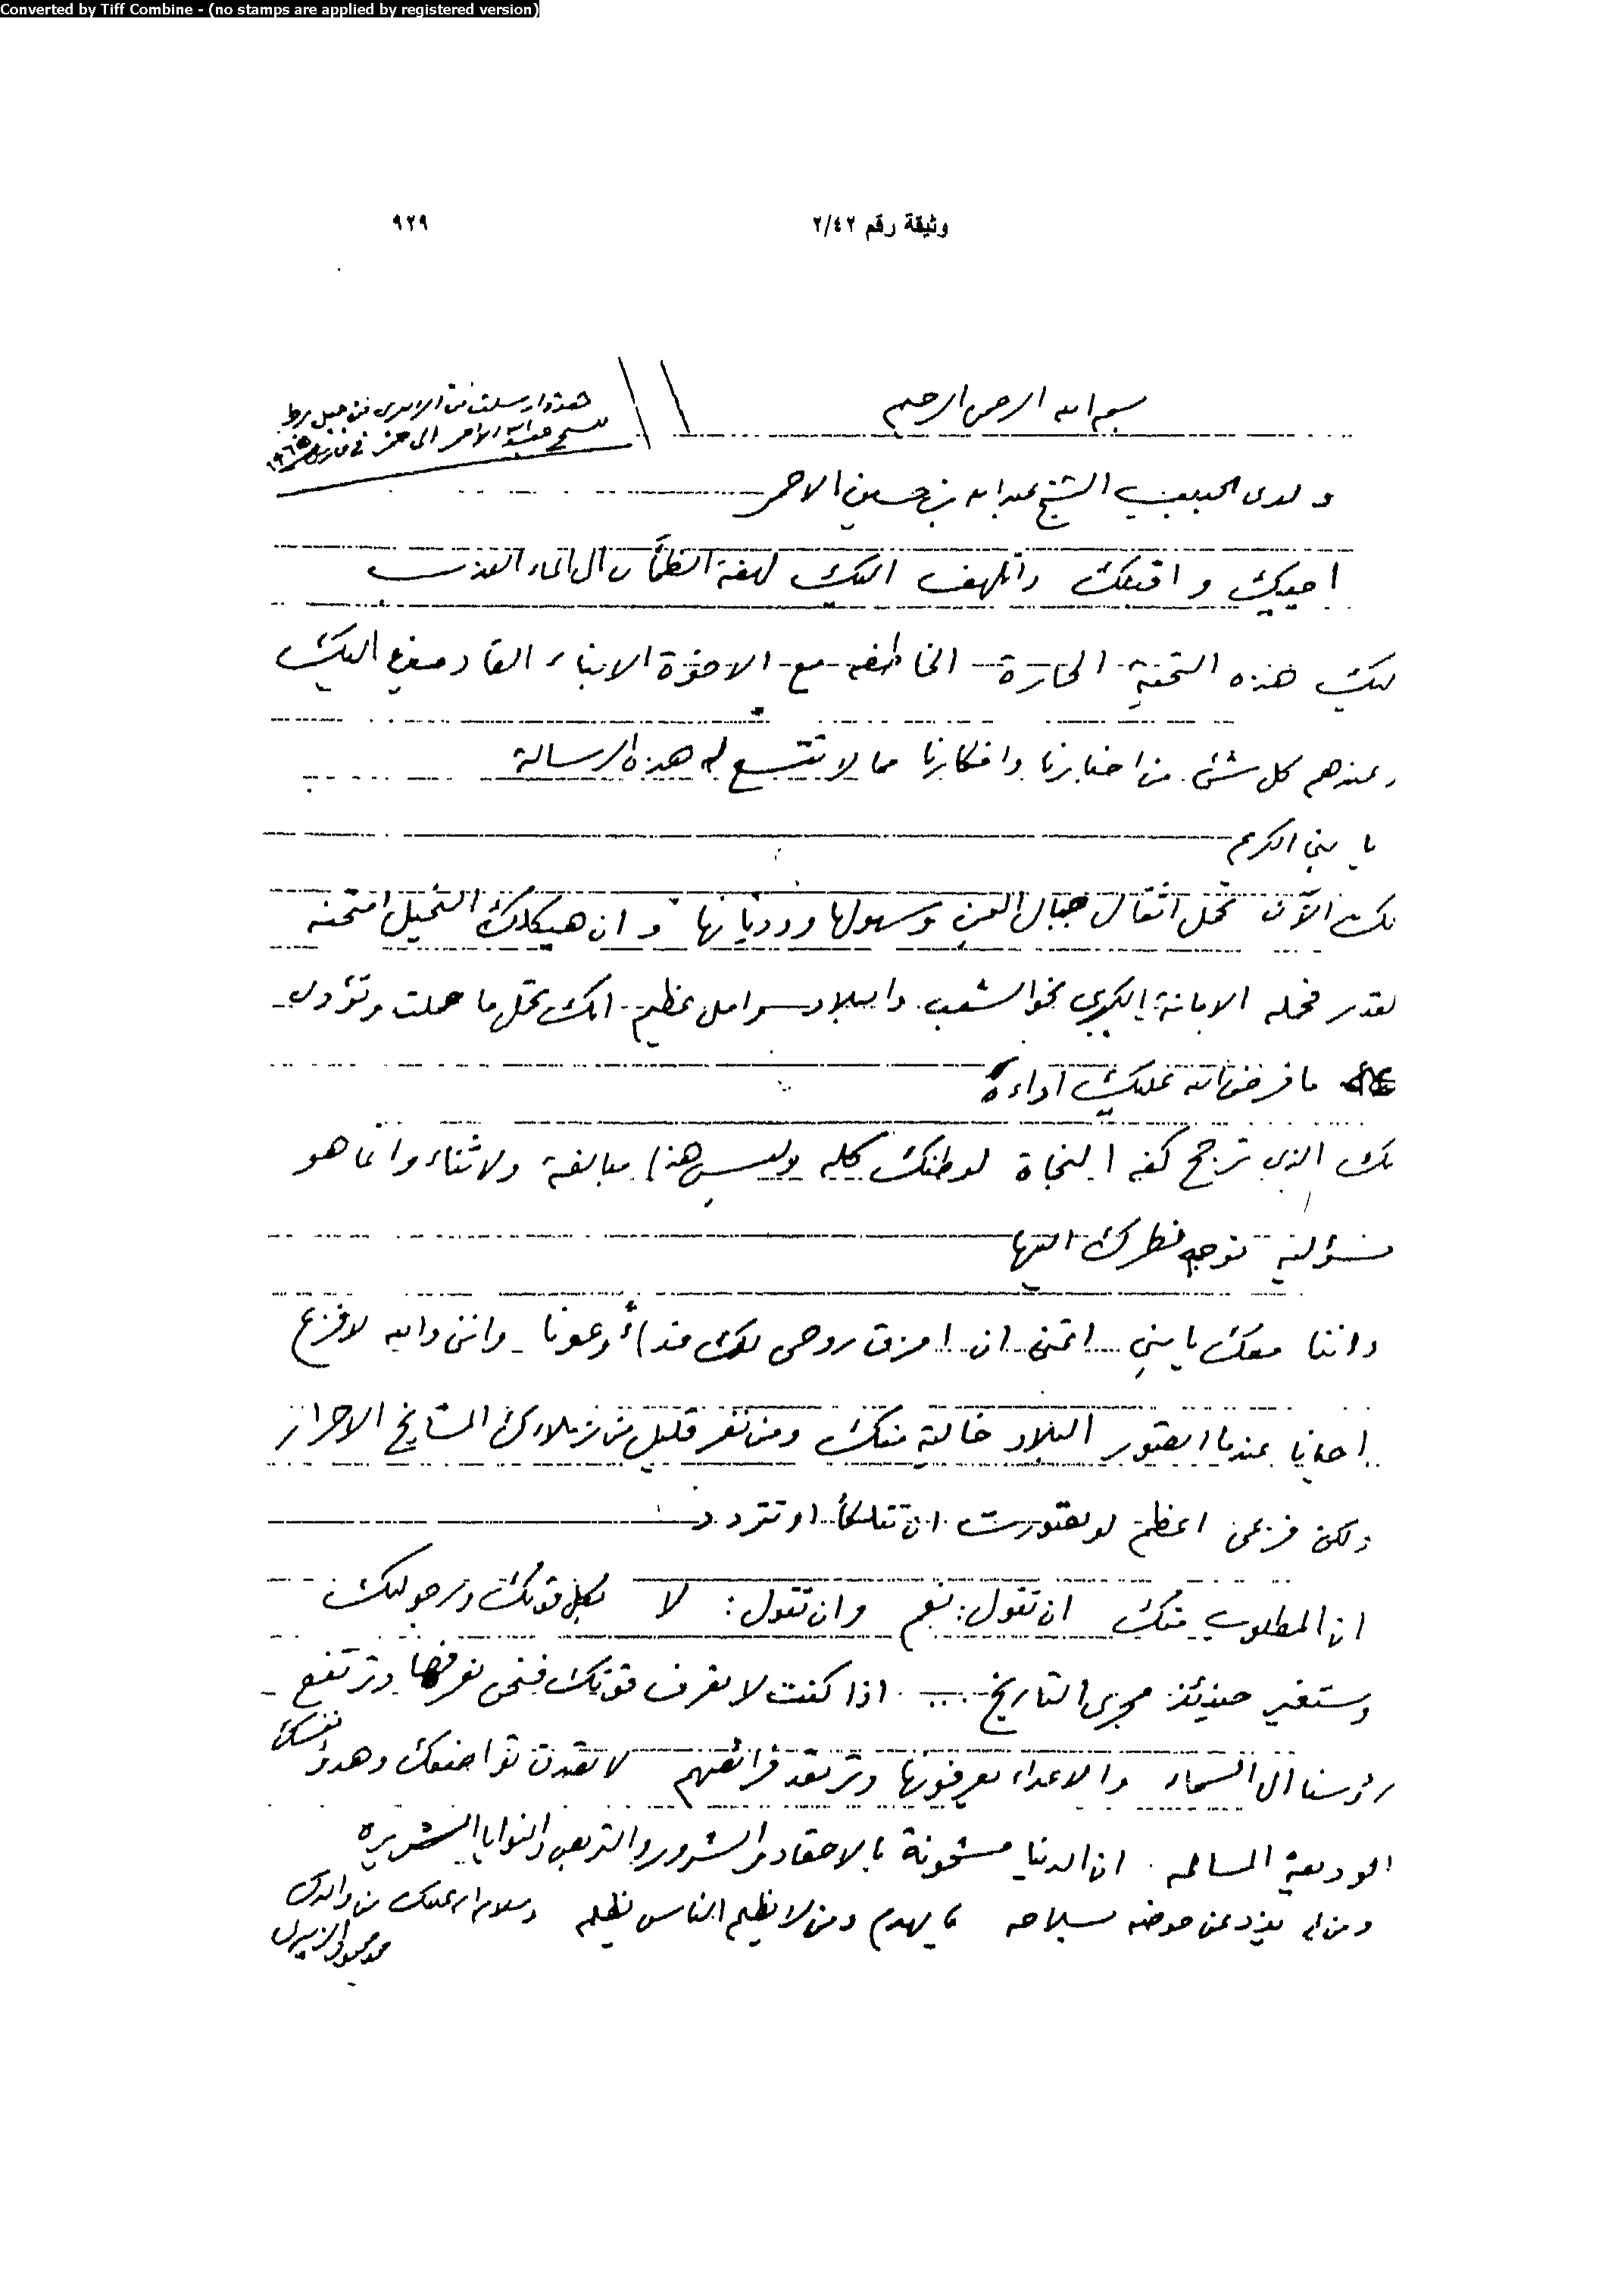 Converted by Tiff Combine - (no stamps are applied by registered version)
وثيقة رقم ٢/٤٢
٩٢٩
بسم الله الرحمن الرحيم
هذه ارسلت من الزبيري من جبل برط
للشيخ عبدالله الاحمر الى خمر في مارس ١٩٦٥
ولدي الحبيب الشيخ عبدالله بن حسين الاحمر
احييك واقبلك واتلهف اليك لهفة الظمآن الى الماء العذب
ليك هذه التحية الحارة الخاطفه مع الاخوة الابناء القادمين اليك
وعندهم كل شئ من اخبارنا وافكارنا مما لا تتسع له هذه الرسالة
يا بني الكريم
نك الآن تحمل اثقال جبال اليمن وسهولها ووديانها وان هيكلك النحيل امتحنه
لقدر فحمله الامانة الكبرى نحو الشعب والبلاد وامل عظيم انك تحمل ما حملت وتؤدي
ما فرض الله عليك اداءه
نك الذي ترجح كفه النجاة لوطنك كله وليس هذا مبالغة ولا ثناء وانما هو
سؤلية نوجه نظرك اليها
واننا معك يا بني اتمنى ان امزق روحي لك فداءً وعونا وانني والله لافزع
احيانا عندما اتصور البلاد خالية منك ومن نفر قليل من زملاءك المشايخ الاحرار
ولكن فزعي اعظم لو تصورت ان تتلكأ او تتردد
ان المطلوب منك ان تقول: نعم وان تقول: لا بكل قوتك ورجولتك
وستغير حينئذ مجرى التاريخ .... اذا كنت لا تعرف قوتك فنحن نعرفها وترتفع
رؤسنا الى السماء والاعداء يعرفونها وترتعد فرائصهم لا يقدن تواضعك وهدؤ نفسك
الوديعة المسالمه . ان الدنيا مشحونة بالاحقاد والشرور والتربص والنوايا الشريره
ومن لم يذد عن حوضه بسلاحه يهدم ومن لا يظلم الناس يظلم وسلام الله عليك من والدك
محمد محمود الزبيري